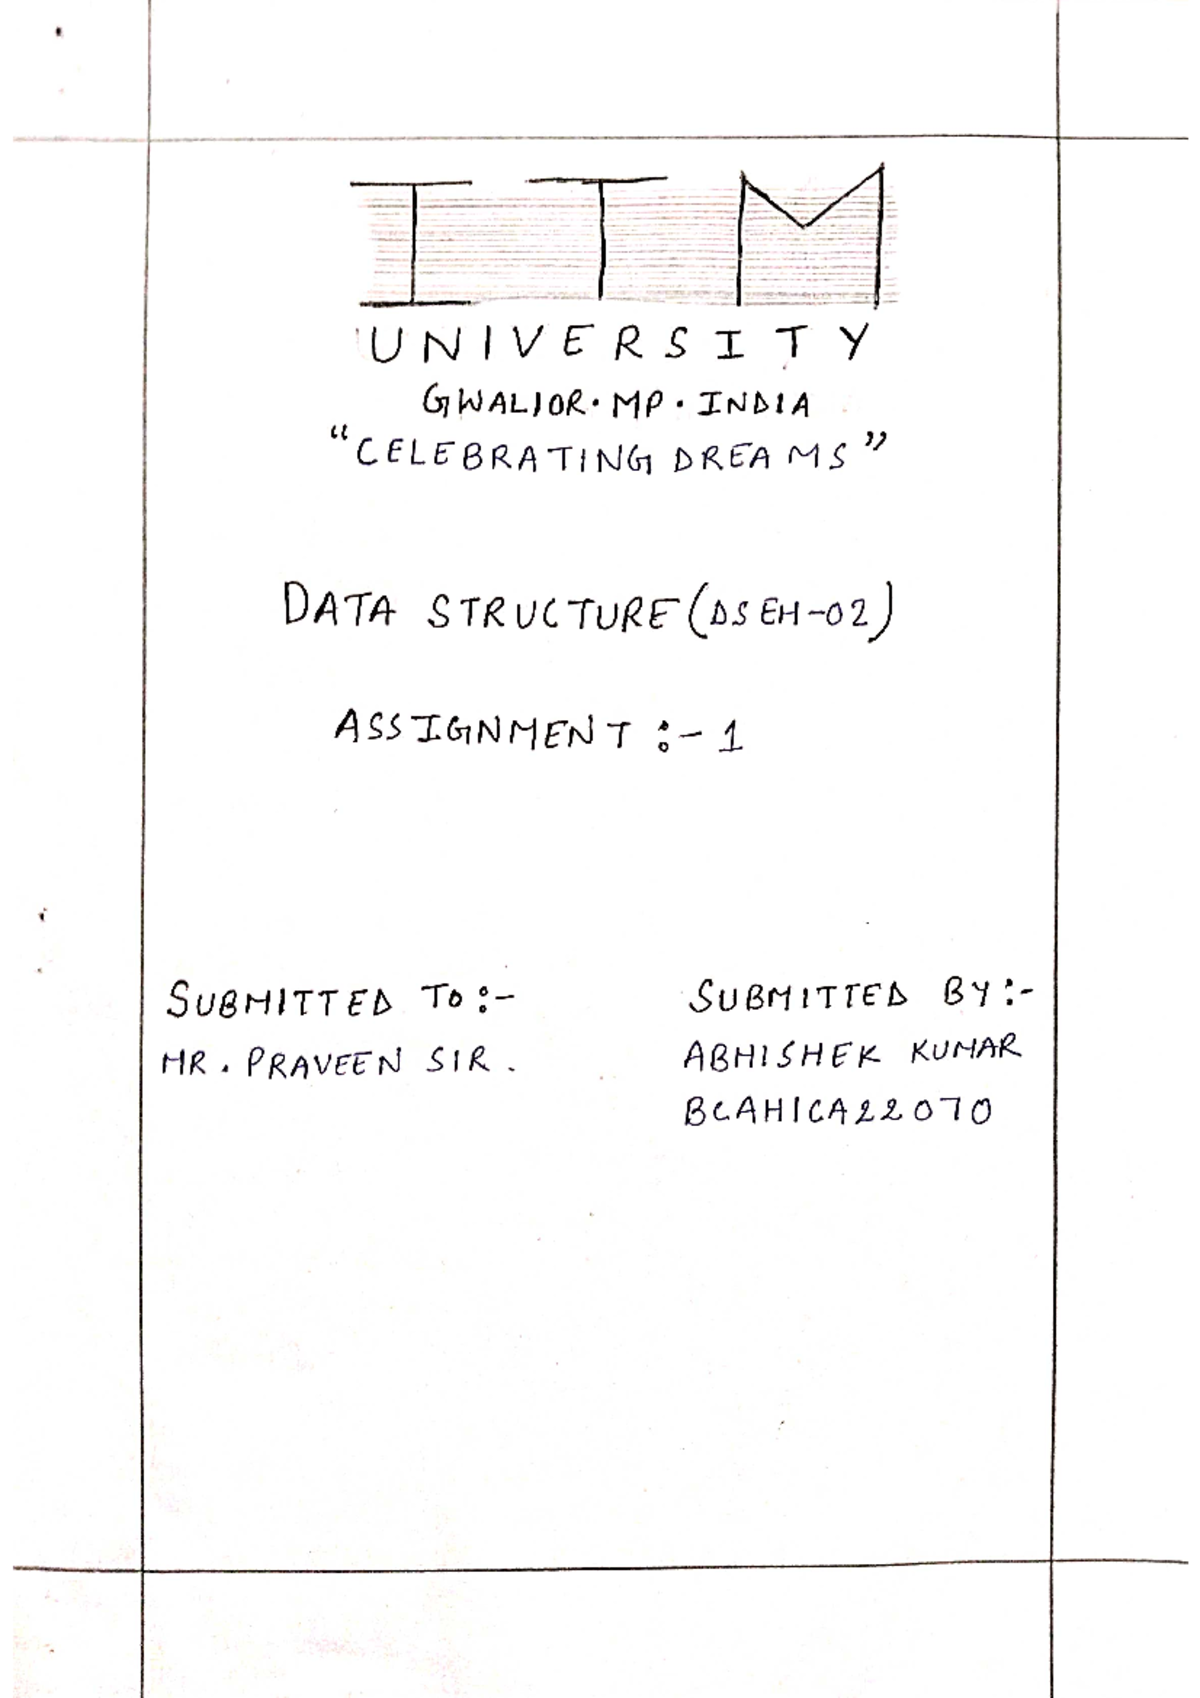 ITM
UNIVERSITY
GWALIOR · MP · INDIA
"CELEBRATING DREAMS"
DATA STRUCTURE (DSEH-02)
ASSIGNMENT :- 1
SUBMITTED TO :-
MR. PRAVEEN SIR.
SUBMITTED BY :-
ABHISHEK KUMAR
BCAH1CA22070